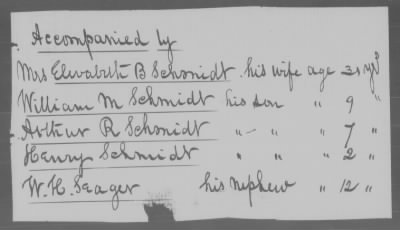 Accompanied by
Mrs Elizabeth B Schmidt his wife age yrs
William M Schmidt his son " 9 "
Arthur R Schmidt " - " " 7 "
Henry Schmidt " " " 2 "
W. H. Seager his nephew " 12 "